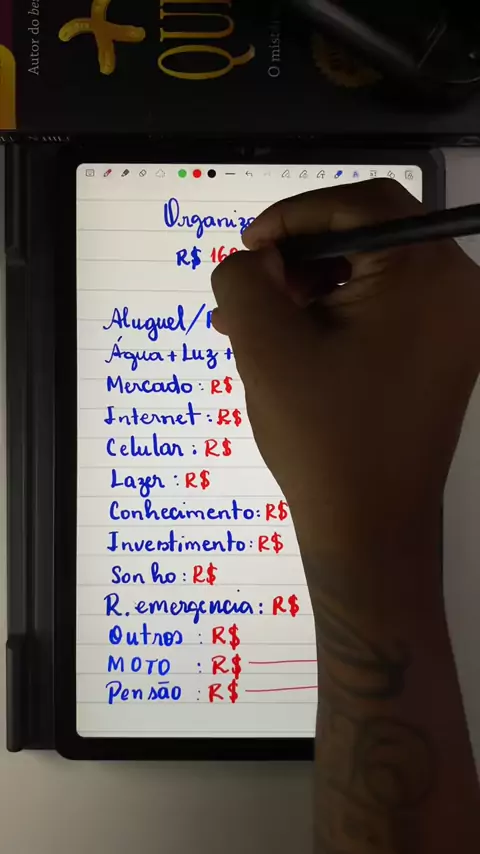 Autor do
QUI
O
Organiza
R$ 16
Aluguel/
Água + Luz +
Mercado: R$
Internet: R$
Celular: R$
Lazer: R$
Conhecimento: R$
Investimento: R$
Sonho: R$
R. emergencia: R$
Outros : R$
MOTO : R$
Pensão : R$